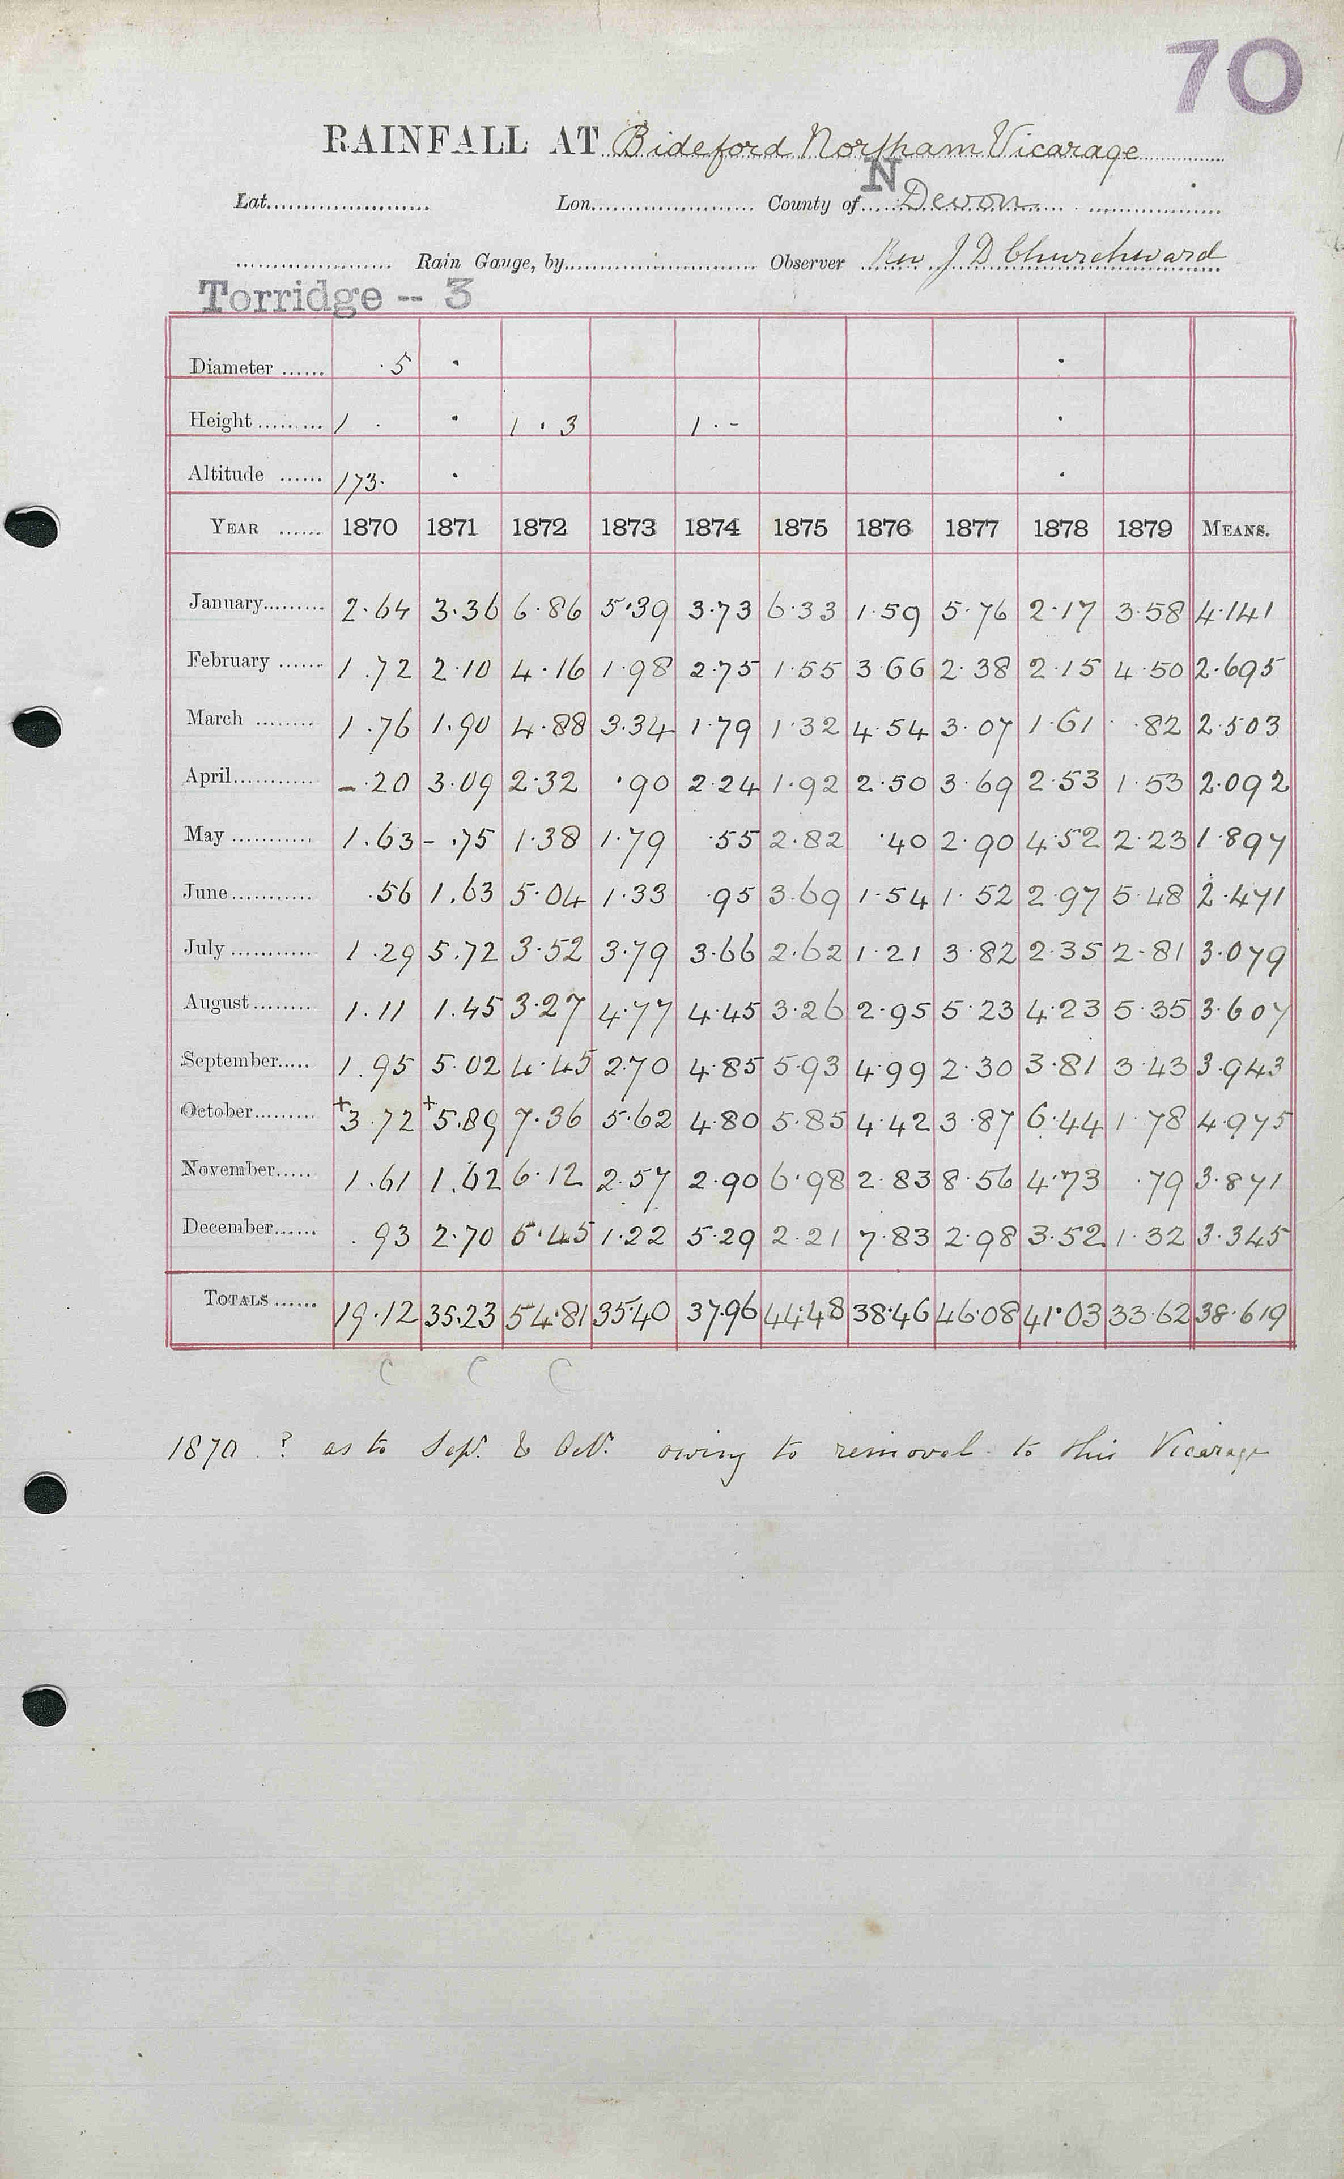 70
RAINFALL AT Bideford Northam Vicarage
Lat. Lon. County of N Devon
Rain Gauge, by Observer Rev J D Churchward
Torridge -- 3
Diameter ...... 5
Height ......... 1 . 1 . 3 1 . -
Altitude ...... 173.
YEAR ...... 1870 1871 1872 1873 1874 1875 1876 1877 1878 1879 MEANS.
January......... 2.64 3.36 6.86 5.39 3.73 6.33 1.59 5.76 2.17 3.58 4.141
February ...... 1.72 2.10 4.16 1.98 2.75 1.55 3.66 2.38 2.15 4.50 2.695
March ........ 1.76 1.90 4.88 3.34 1.79 1.32 4.54 3.07 1.61 .82 2.503
April............ -.20 3.09 2.32 .90 2.24 1.92 2.50 3.69 2.53 1.53 2.092
May ............ 1.63 -.75 1.38 1.79 .55 2.82 .40 2.90 4.52 2.23 1.897
June............ .56 1.63 5.04 1.33 .95 3.69 1.54 1.52 2.97 5.48 2.471
July ............ 1.29 5.72 3.52 3.79 3.66 2.62 1.21 3.82 2.35 2.81 3.079
August......... 1.11 1.45 3.27 4.77 4.45 3.26 2.95 5.23 4.23 5.35 3.607
September..... 1.95 5.02 4.45 2.70 4.85 5.93 4.99 2.30 3.81 3.43 3.943
October......... +3.72 +5.89 7.36 5.62 4.80 5.85 4.42 3.87 6.44 1.78 4.975
November...... 1.61 1.62 6.12 2.57 2.90 6.98 2.83 8.56 4.73 .79 3.871
December...... .93 2.70 5.45 1.22 5.29 2.21 7.83 2.98 3.52 1.32 3.345
TOTALS ...... 19.12 35.23 54.81 35.40 37.96 44.48 38.46 46.08 41.03 33.62 38.619
C C C
1870 ? as to Sep. & Oct. owing to removal to this Vicarage